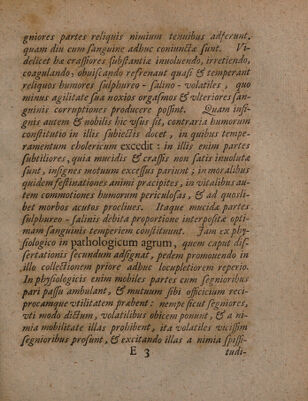 gniores partes reliquis nimium tenuibus adferunt,
quam diu cum sanguine adhuc coniunctæ sunt. Vi-
delicet hæ crassiores substantiæ inuoluendo, irretiendo,
coagulando, obuiscando refrenant quasi & temperant
reliquos humores sulphureo - salino - volatiles, quo
minus agilitate sua noxios orgasmos & vlteriores san-
guinis corruptiones producere possint. Quam insi-
gnis autem & nobilis hic vsus sit, contraria humorum
constitutio in illis subiectis docet, in quibus tempe-
ramentum cholericum excedit : in illis enim partes
subtiliores, quia mucidis & crassis non satis inuolutæ
sunt, insignes motuum excessus pariunt ; in moralibus
quidem festinationes animi præcipites, in vitalibus au-
tem commotiones humorum periculosas, & ad quosli-
bet morbos acutos procliues. Itaque mucidæ partes
sulphureo - salinis debita proportione interpositæ opti-
mam sanguinis temperiem constituunt. Jam ex phy-
siologico in pathologicum agrum, quem caput dis-
sertationis secundum adsignat, pedem promouendo in
illo collectionem priore adhuc locupletiorem reperio.
In physiologicis enim mobiles partes cum segnioribus
pari passu ambulant, & mutuum sibi officium reci-
procamque vtilitatem præbent : nempe sicut segniores,
vti modo dictum, volatilibus obicem ponunt, & a ni-
mia mobilitate illas prohibent, ita volatiles vicissim
segnioribus prosunt, & excitando illas a nimia spissi-
E 3 tudi-